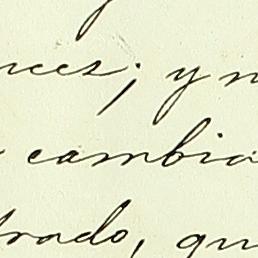 nces; y n
cambia
trado, qu